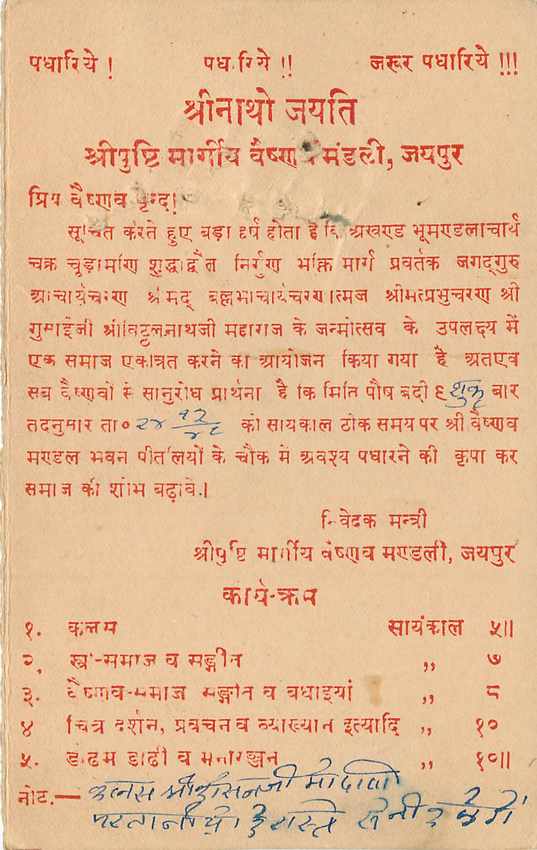 पधारिये ! पधारिये !! जरूर पधारिये !!!
श्रीनाथो जयति
श्रीपुष्टि मार्गीय वैष्णव मंडली, जयपुर
प्रिय वैष्णव वृन्द।
सूचित करते हुए बड़ा हर्ष होता है कि अखण्ड भूमण्डलाचार्य
चक्र चूड़ामणि शुद्धाद्वैत निर्गुण भक्ति मार्ग प्रवर्तक जगद्गुरु
आचार्यचरण श्रीमद् बल्लभाचार्यचरणात्मज श्रीमत्प्रभुचरण श्री
गुसाईजी श्रीविट्ठलनाथजी महाराज के जन्मोत्सव के उपलक्ष्य में
एक समाज एकत्रित करने का आयोजन किया गया है अतएव
सब वैष्णवों से सानुरोध प्रार्थना है कि मिति पौष बदी ९ शुक्र बार
तदनुसार ता० २४ १२ ४८ को सायंकाल ठीक समय पर श्री वैष्णव
मण्डल भवन पीतलियों के चौक में अवश्य पधारने की कृपा कर
समाज की शोभा बढ़ावे।
निवेदक मन्त्री
श्रीपुष्टि मार्गीय वैष्णव मण्डली, जयपुर
कार्य-क्रम
१. कलस सायंकाल ५॥
२. समाज व सङ्गीत ,, ७
३. वैष्णव-समाज सङ्गीत व बधाइयां ,, ८
४ चित्र दर्शन, प्रवचन व व्याख्यान इत्यादि ,, १०
५. ढाढी व मनोरञ्जन ,, १०॥
नोट.— कलस
रास्ते